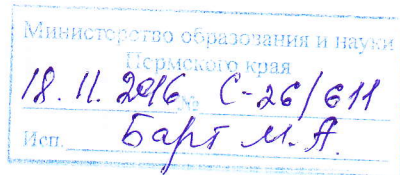 Министерство образования и науки
Пермского края
18.11.2016 № С-26/611
Исп. Барт М.А.